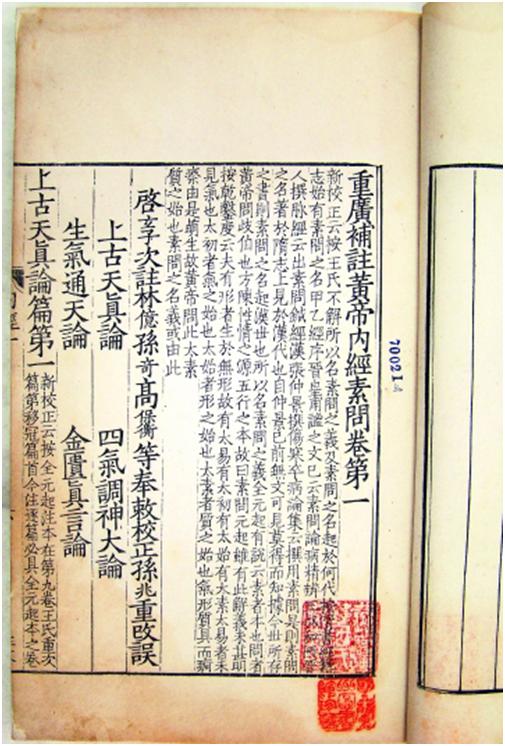 重廣補註黃帝內經素問卷第一
新校正云按王氏不解所以名素問之義及素問之名起於何代按隋書經籍
志始有素問之名甲乙經序晉皇甫謐之文已云素問論病精辨王叔和西晉
人撰脉經云出素問鍼經漢張仲景撰傷寒卒病論集云撰用素問是則素問
之名著於隋志上見於漢代也自仲景已前無文可見莫得而知據今世所存
之書則素問之名起漢世也所以名素問之義全元起有說云素者本也問者
黃帝問歧伯也方陳性情之源五行之本故曰素問元起雖有此解義未甚明
按乾鑿度云夫有形者生於無形故有太易有太初有太始有太素太易者未
見氣也太初者氣之始也太始者形之始也太素者質之始也氣形質具而痾
瘵由是萌生故黃帝問此太素
質之始也素問之名義或由此
啓玄子次註林億孫奇高保衡等奉敕校正孫兆重改誤
上古天眞論 四氣調神大論
生氣通天論 金匱眞言論
上古天眞論篇第一
新校正云按全元起注本在第九卷王氏重次
篇第移冠篇首今注逐篇必具全元起本之卷
700214